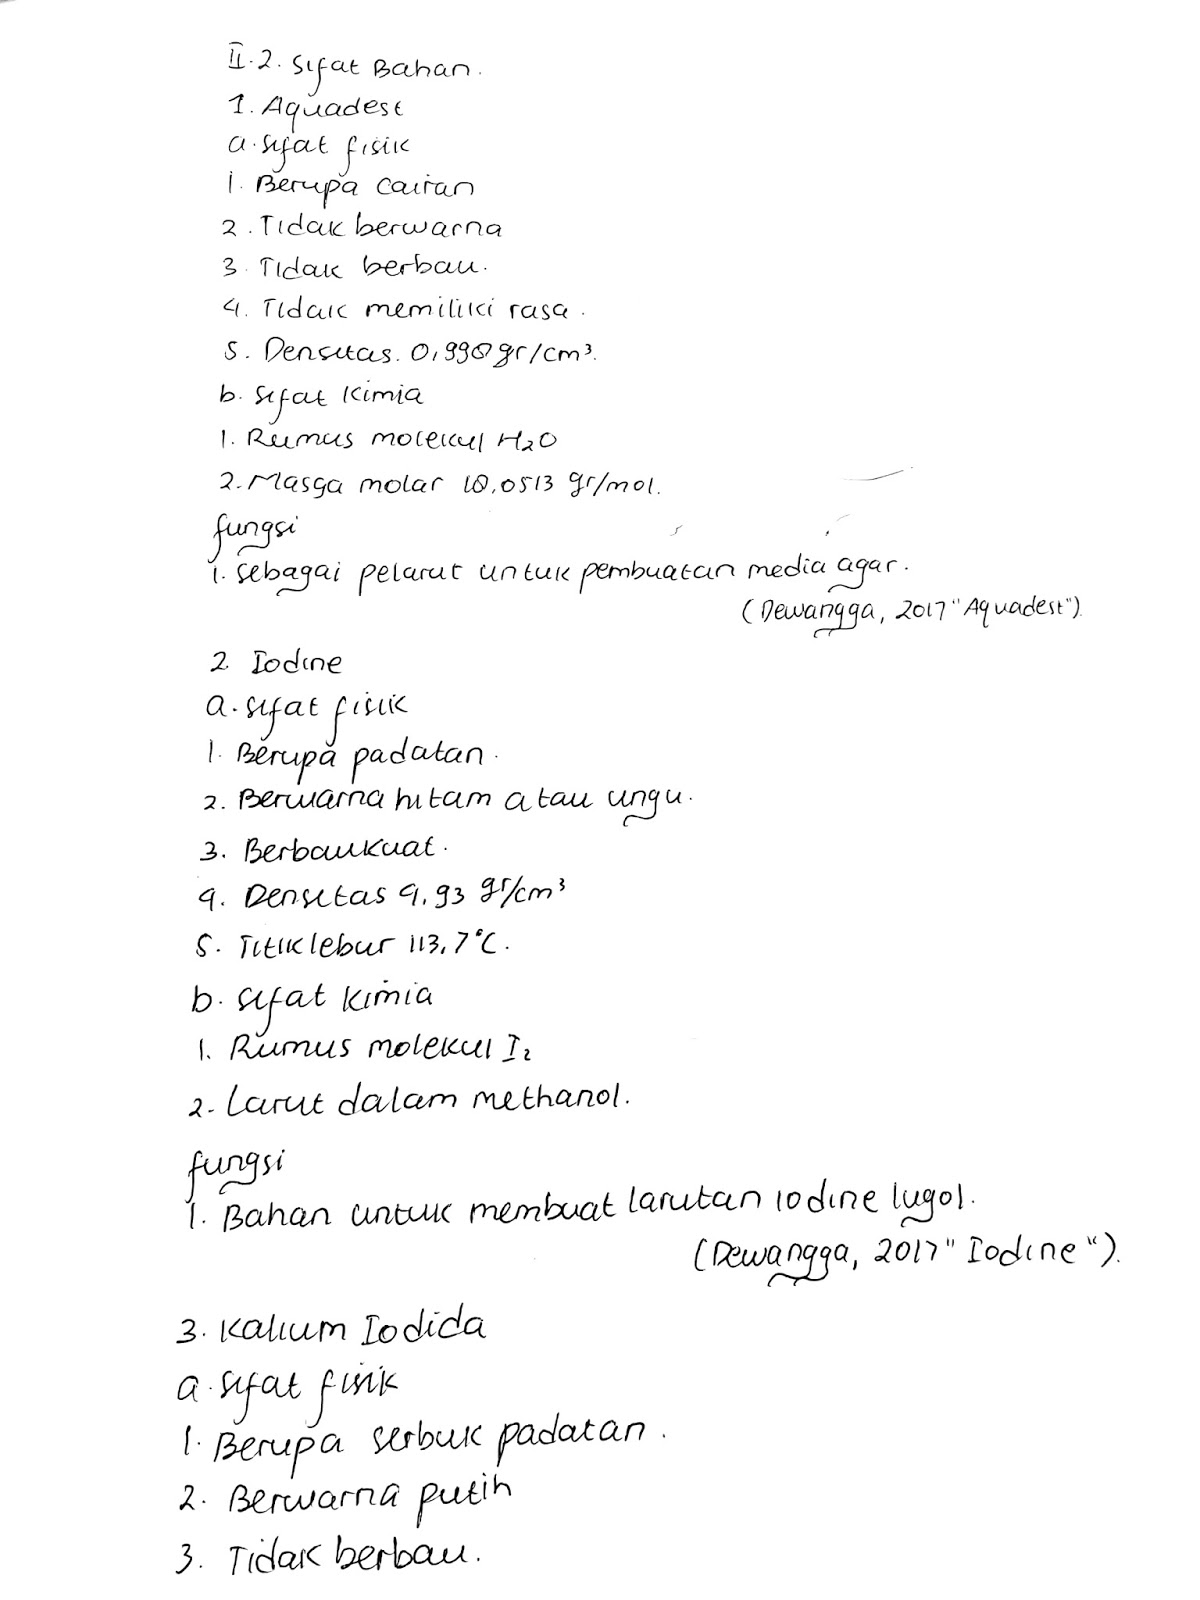 II.2. Sifat Bahan.
1. Aquadest
a. Sifat fisik
1. Berupa cairan
2. Tidak berwarna
3. Tidak berbau.
4. Tidak memiliki rasa.
5. Densitas. 0,998 gr/cm³.
b. Sifat kimia
1. Rumus molekul H₂O
2. Massa molar 18,0513 gr/mol.
fungsi
1. Sebagai pelarut untuk pembuatan media agar.
(Dewangga, 2017 "Aquadest").
2. Iodine
a. Sifat fisik
1. Berupa padatan.
2. Berwarna hitam atau ungu.
3. Berbau kuat.
4. Densitas 4,93 gr/cm³
5. Titik lebur 113,7°C.
b. Sifat kimia
1. Rumus molekul I₂
2. Larut dalam methanol.
fungsi
1. Bahan untuk membuat larutan iodine lugol.
(Dewangga, 2017 "Iodine").
3. Kalium Iodida
a. Sifat fisik
1. Berupa serbuk padatan.
2. Berwarna putih
3. Tidak berbau.